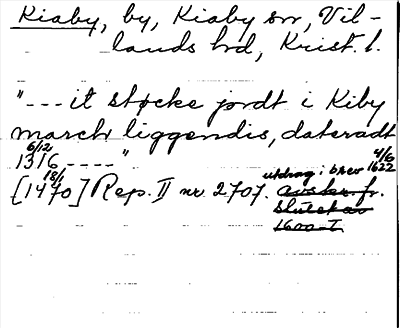 Kiaby, by, Kiaby sn, Vil-
lands hd, Krist. l.
"--- it støcke jordt i Kiby
march liggendis, dateradt
6/12
1316 ----"
18/1
[1470] Rep. II nr 2707. utdrag i brev 4/6 1622
avskr. fr.
slutet av
1600-t.